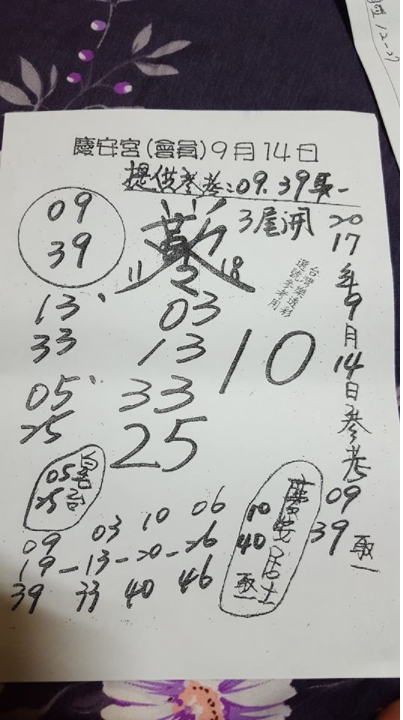 慶安宮(會員)9月14日
提供參考:09.39取一
09
39
3尾開
11 2 18
台灣樂透彩
選號參考用
2017年9月14日參考
09
39
取一
13
33
05
25
03
13
33
25
10
05
25
09 03 10 06
19-13-20-26
39 33 40 46
慶安居士
10
40
取一
12-27